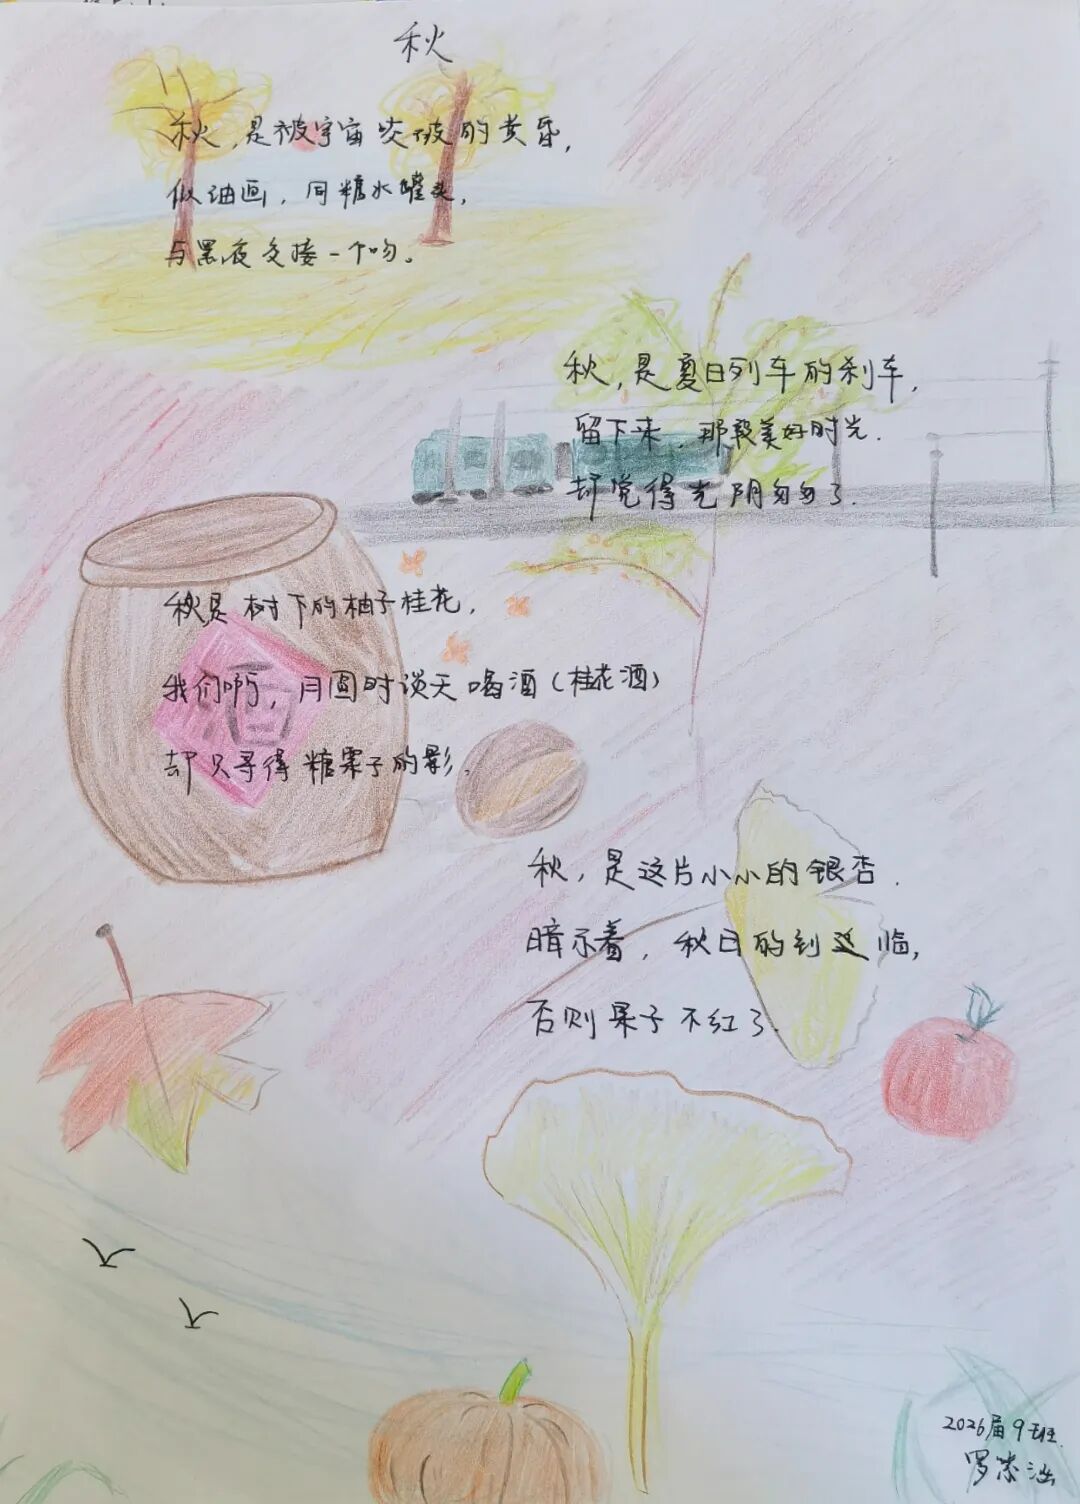 秋
秋,是被宇宙咬破的黄昏,
似油画,同糖水罐头,
与黑夜交接一个吻。
秋,是夏日列车的刹车,
留下来,那段美好时光.
却觉得光阴匆匆了.
秋是树下的柚子桂花,
我们啊,月圆时谈天喝酒(桂花酒)
却只寻得糖栗子的影.
酒
秋,是这片小小的银杏.
暗示着,秋日的到临,
否则果子不红了.
2026届9班.
罗